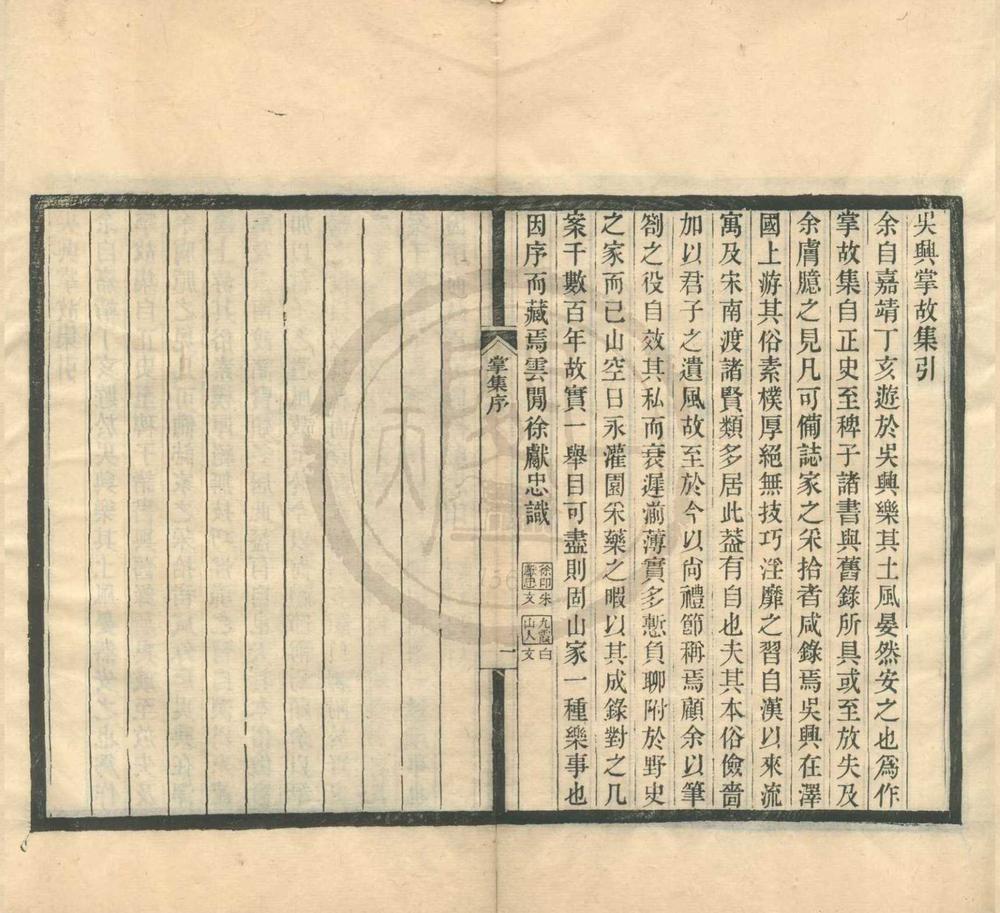 吳興掌故集引
余自嘉靖丁亥遊於吳興樂其土風晏然安之也爲作
掌故集自正史至稗子諸書與舊錄所具或至放失及
余膚臆之見凡可備誌家之采拾者咸錄焉吳興在澤
國上游其俗素樸厚絕無技巧淫靡之習自漢以來流
寓及宋南渡諸賢類多居此葢有自也夫其本俗儉嗇
加以君子之遺風故至於今以尚禮節稱焉顧余以筆
劄之役自效其私而衰遲谫薄實多慙負聊附於野史
之家而已山空日永灌園采藥之暇以其成錄對之几
案千數百年故實一舉目可盡則固山家一種樂事也
因序而藏焉雲閒徐獻忠識
徐印獻忠 朱文
九霞山人 白文
掌集序
一